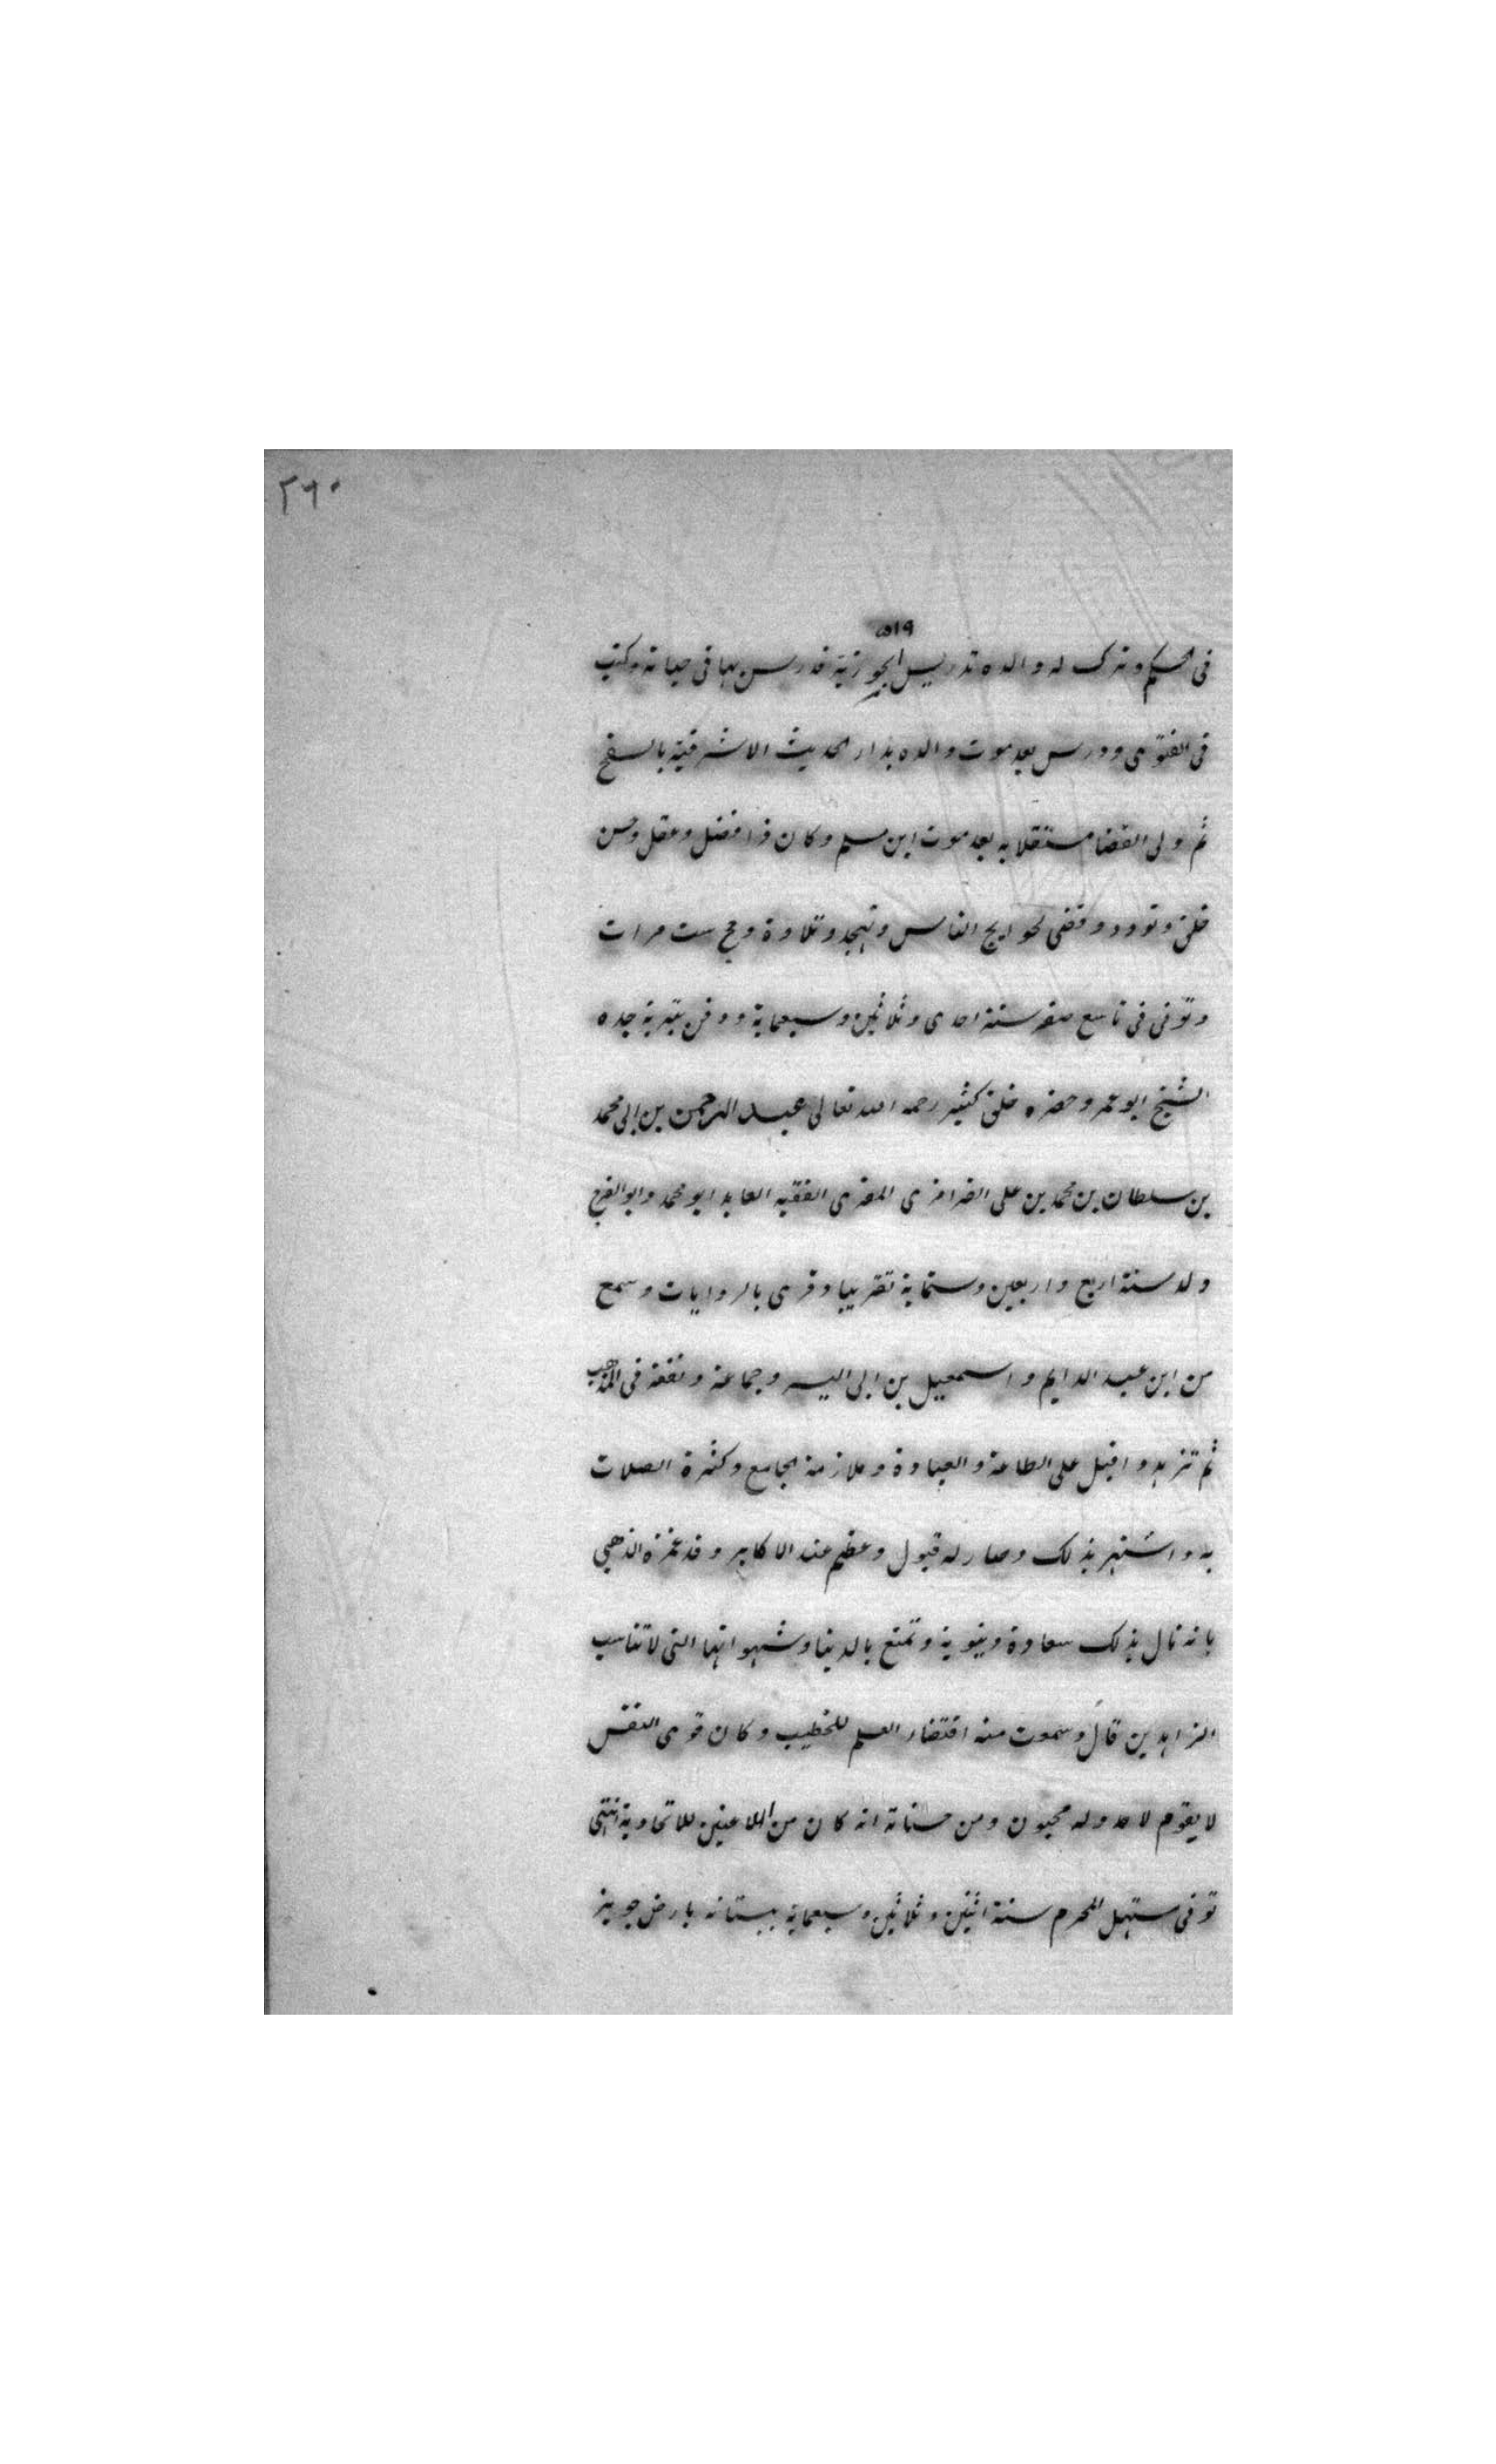 ٢٦٠
٥١٩
فى الحكم وترك له والده تدريس الجوزية فدرس بها فى حياته وكتب
فى الفتوى ودرس بعد موت والده بدار الحديث الاشرفية بالسفح
ثم ولى القضا مستقلا به بعد موت ابن مسلم وكان ذا فضل وعقل وحسن
خلق وتودد وقضى لحوايج الناس وتهجد وتلاوة وحج ست مرات
وتوفى فى تاسع صفر سنة احدى وثلاثين وسبعماية ودفن بتربة جده
الشيخ ابو عمر وحضره خلق كثير رحمه الله تعالى عبد الرحمن بن ابى محمد
بن سلطان بن محمد بن على القرامزى المقرى الفقيه العابد ابو محمد وابو الفرج
ولد سنة اربع واربعين وستماية تقريبا وقرى بالروايات وسمع
من ابن عبد الدايم واسمعيل بن ابى اليسر وجماعة وتفقه فى المذهب
ثم تزهد واقبل على الطاعة والعبادة وملازمة الجامع وكثرة الصلات
به واشتهر بذلك وصار له قبول وعظم عند الاكابر وقد غمزه الذهبى
بانه نال بذلك سعادة دنيوية وتمتع بالدنيا وشهواتها التى لا تناسب
الزاهدين قال وسمعت منه اقتضاء العلم للخطيب وكان قوى النفس
لا يقوم لاحد وله محبون ومن حسناته انه كان من اللاعنين للاتحادية انتهى
توفى مستهل المحرم سنة اثنين وثلاثين وسبعماية ببستانه بارض جوبر